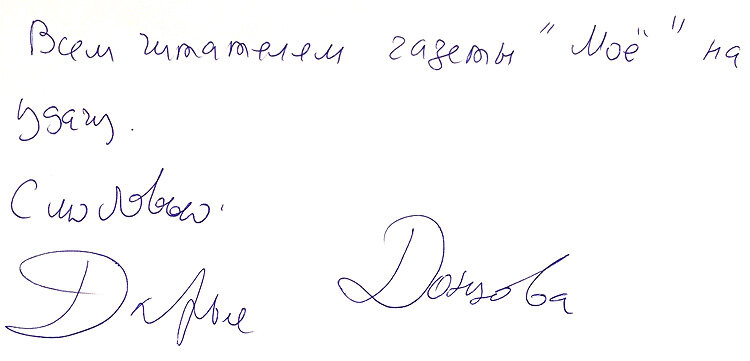 Всем читателям газеты "Моё" на
удачу.
С любовью.
Дарья Донцова